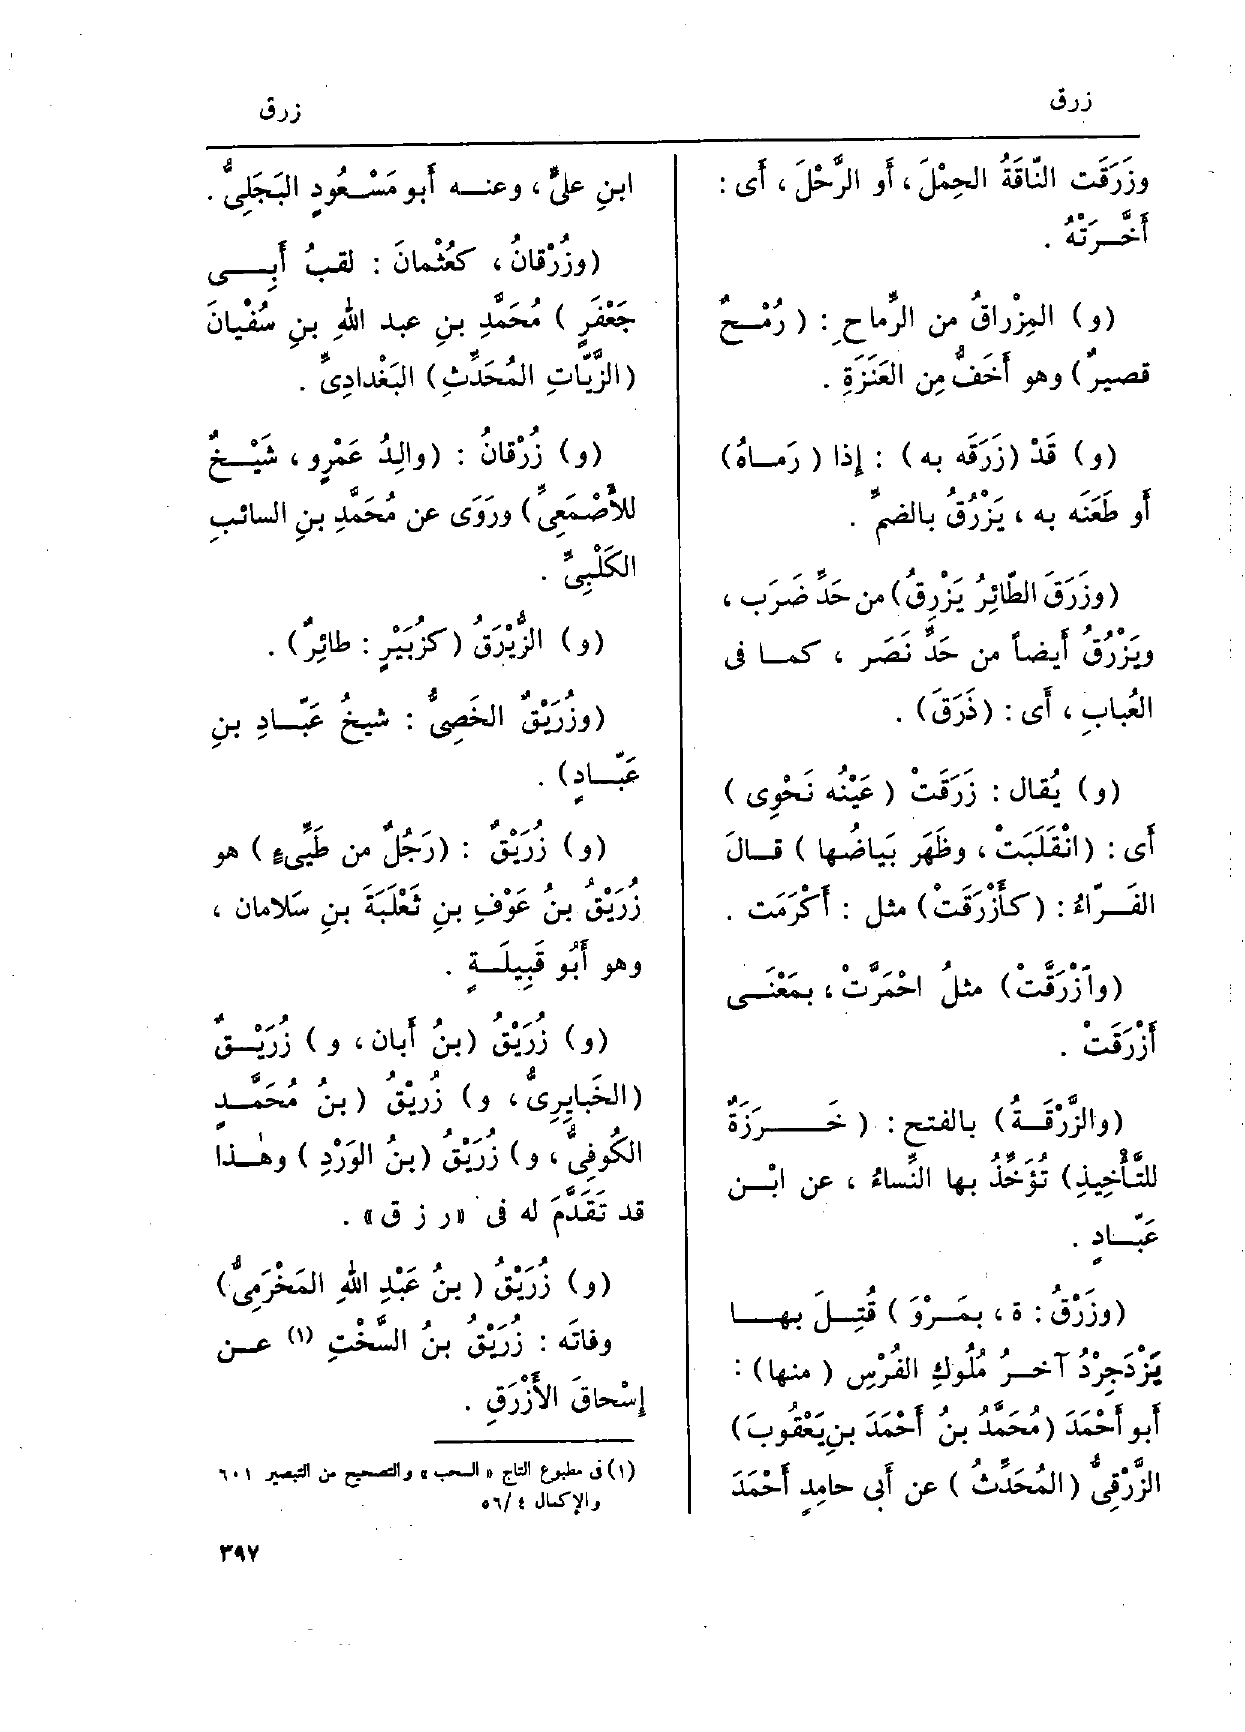 زرق
زرق
وزَرَقَت النّاقَةُ الحِمْلَ، أَو الرَّحْلَ، أَى :
أَخَّرَتْهُ .
(و) المِزْراقُ من الرِّماحِ : ( رُمْحٌ
قصيرٌ) وهو أَخَفُّ مِن العَنَزَةِ .
(و) قَدْ (زَرَقَه به) : إِذا ( رَمَاهُ)
أَو طَعَنَه به ، يَزْرُقُ بالضمِّ .
(وزَرَقَ الطّائِرُ يَزْرِقُ) من حَدِّ ضَرَب ،
ويَزْرُقُ أَيضاً من حَدِّ نَصَر ، كما فى
العُباب ، أَى : (ذَرَقَ) .
(و) يُقال : زَرَقَتْ ( عَيْنُه نَحْوِى )
أَى : (انْقَلَبَتْ ، وظَهَر بَياضُها ) قالَ
الفَرّاءُ : (كأَزْرَقَتْ) مثل : أَكْرَمَت .
(وازْرَقَّتْ) مثلُ احْمَرَّتْ ، بمَعْنَى
أَزْرَقَتْ .
(والزَّرْقَةُ) بالفتح : ( خَرَزَةٌ
للتَّأْخِيذِ) تُؤَخِّذُ بها النِّساءُ ، عن ابْنِ
عَبّادٍ .
(وزَرْقُ : ة ، بمَرْوَ ) قُتِلَ بها
يَزْدَجِرْدُ آخرُ مُلُوكِ الفُرْسِ ( منها) :
أَبو أَحْمَدَ (مُحَمَّدُ بنُ أَحْمَدَ بنِ يَعْقُوبَ)
الزَّرْقِىُّ (المُحَدِّثُ ) عن أَبى حامِدٍ أَحْمَدَ
ابنِ علىٍّ ، وعنه أَبو مَسْعُودٍ البَجَلِىُّ .
(وزُرْقانُ ، كعُثْمانَ : لقبُ أَبِى
جَعْفَرٍ ) مُحَمَّدِ بنِ عبد اللهِ بنِ سُفْيانَ
(الزَّيّاتِ المُحَدِّثِ) البَغْدادِىِّ .
(و) زُرْقانُ : (والِدُ عَمْرٍو ، شَيْخٌ
للأَصْمَعِىِّ) ورَوَى عن مُحَمَّدِ بنِ السائب
الكَلْبِىِّ .
(و) الزُّرَيْقُ (كزُبَيْرٍ : طائِرٌ) .
(وزُرَيْقٌ الخَصِىُّ : شيخُ عَبّادِ بنِ
عَبّادٍ) .
(و) زُرَيْقٌ : (رَجُلٌ من طَيِّىءٍ ) هو
زُرَيْقُ بنُ عَوْفِ بنِ ثَعْلَبَةَ بنِ سَلامان ،
وهو أَبُو قَبِيلَةٍ .
(و) زُرَيْقُ (بنُ أَبان ، و ) زُرَيْقٌ
(الخَبايِرِىُّ ، و) زُريْقُ (بنُ مُحَمَّدٍ
الكُوفِىُّ ، و) زُرَيْقُ (بنُ الوَرْدِ ) وهٰذا
قد تَقَدَّمَ له فى «ر ز ق» .
(و) زُرَيْقُ ( بنُ عَبْدِ اللهِ المَخْرَمِىُّ)
وفاتَه : زُرَيْق بنُ السَّخْتِ (١) عن
إِسْحاقَ الأَزْرَقِ .
(١) فى مطبوع التاج « السحب » والتصحيح من التبصير ٦٠١
والإكمال ٤ /٥٦
٣٩٧